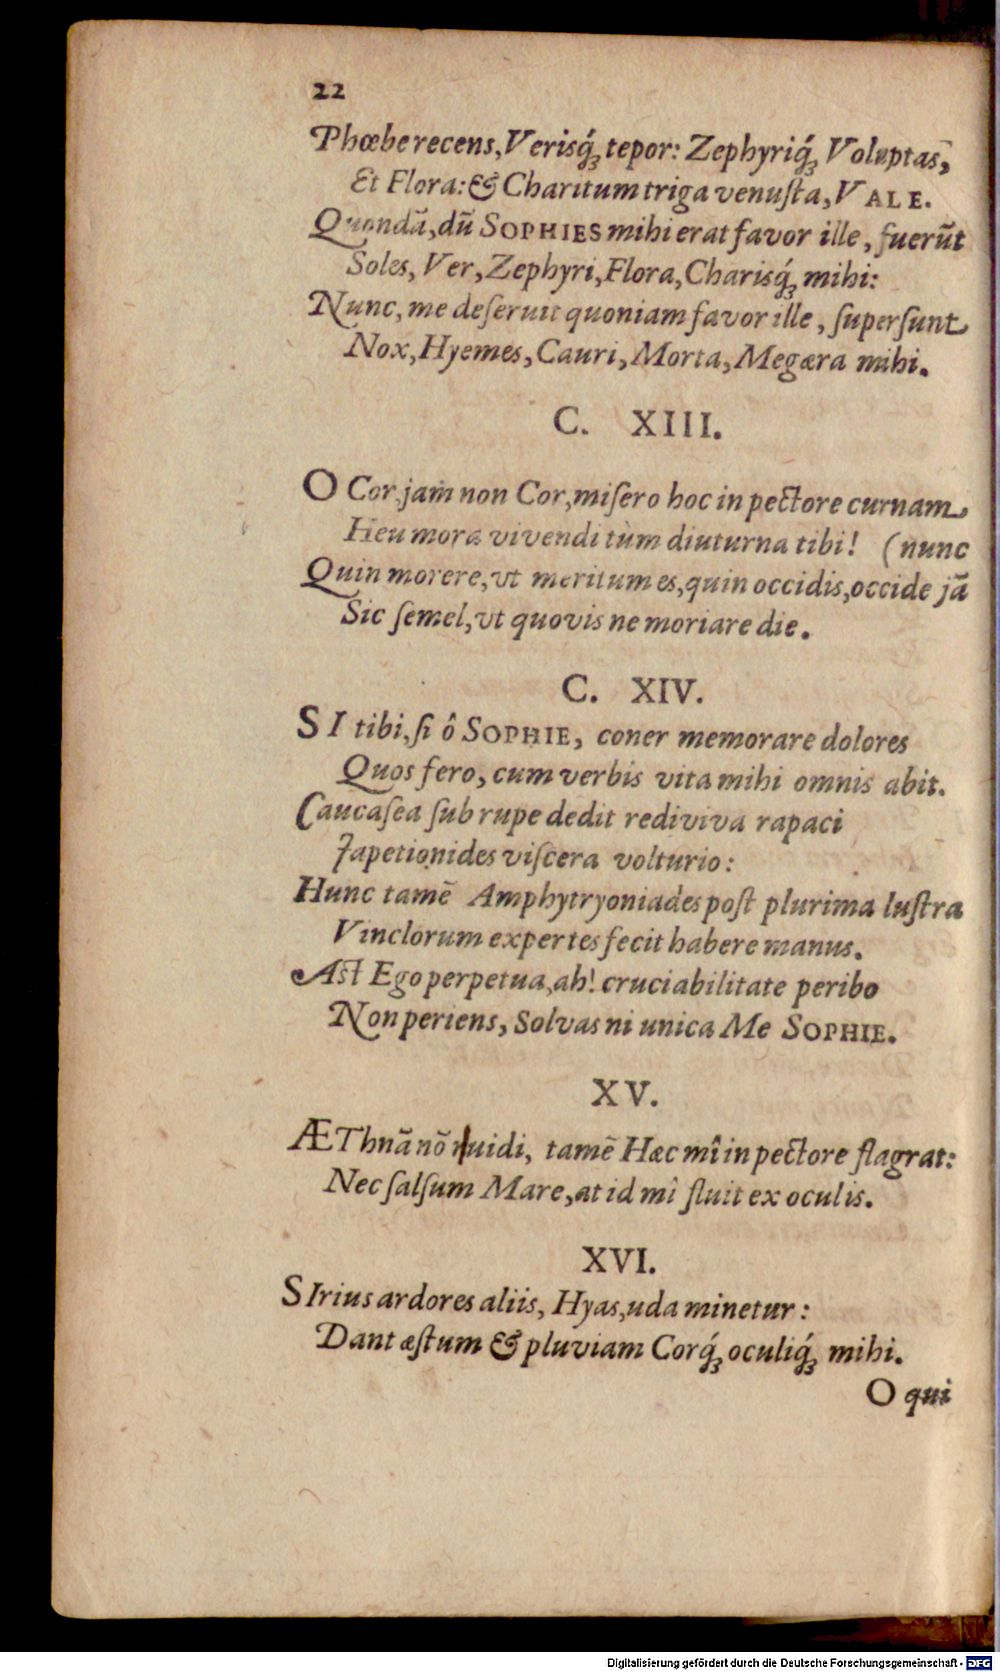 22
Phœbe recens, Verisq́ꝫ tepor: Zephyriq́ꝫ Voluptas,
Et Flora: & Charitum triga venuſta, VALE.
Quondã, dũ SOPHIES mihi erat favor ille, fuerũt
Soles, Ver, Zephyri, Flora, Charisq́ꝫ mihi:
Nunc, me deſeruit quoniam favor ille, ſuperſunt
Nox, Hyemes, Cauri, Morta, Megæra mihi.
C. XIII.
O Cor jam non Cor, miſero hoc in pectore cur nam
Heu mora vivendi tùm diuturna tibi! (nunc
Quin morere, vt meritum es, quin occidis, occide jã
Sic ſemel, vt quovis ne moriare die.
C. XIV.
SI tibi, ſi ô SOPHIE, coner memorare dolores
Quos fero, cum verbis vita mihi omnis abit.
Caucaſea ſub rupe dedit rediviva rapaci
Japetionides viſcera volturio:
Hunc tamẽ Amphytryoniades poſt plurima luſtra
Vinclorum expertes fecit habere manus.
Aſt Ego perpetua, ah! cruciabilitate peribo
Non periens, Solvas ni unica Me SOPHIE.
XV.
ÆThnã nõ uidi, tamẽ Hæc mî in pectore flagrat:
Nec ſalſum Mare, at id mî fluit ex oculis.
XVI.
SIrius ardores aliis, Hyas, uda minetur:
Dant æſtum & pluviam Corq́ꝫ oculiq́ꝫ mihi.
O qui
Digitalisierung gefördert durch die Deutsche Forschungsgemeinschaft - DFG